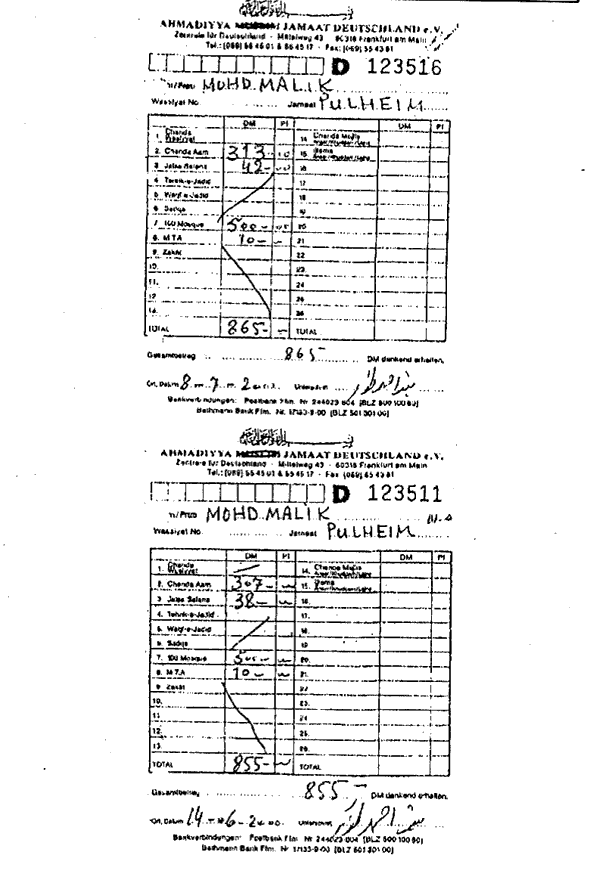 AHMADIYYA MUSLIM JAMAAT DEUTSCHLAND e.V.
Zentrale für Deutschland - Mittelweg 43 - 60318 Frankfurt am Main
Tel.: (069) 55 45 01 & 55 45 17 - Fax: (069) 55 43 81
D 123516
rr/Frau MOHD. MALIK
Wassiyat No. Jamaat PULHEIM
DM PF DM PF
1. Chanda Wasiyyat 14. Chanda Majlis
2. Chanda Aam 313 10 15. Ijtema
3. Jalsa Salana 42 16.
4. Tehrik-e-Jadid 17.
5. Waqf-e-Jadid 18.
6. Sadqa 19.
7. 100 Mosque 500 20.
8. M T A 10 21.
9. Zakat 22.
10. 23.
11. 24.
12. 25.
13. 26.
TOTAL 865 TOTAL
Gesamtbetrag 865 DM dankend erhalten.
Ort, Datum 8. 7. Unterschrift
Bankverbindungen: Postbank Ffm. Nr 244023-604 (BLZ 500 100 60)
Bethmann Bank Ffm. Nr. 17133-9-00 (BLZ 501 301 00)
AHMADIYYA MUSLIM JAMAAT DEUTSCHLAND e.V.
Zentrale für Deutschland - Mittelweg 43 - 60318 Frankfurt am Main
Tel.: (069) 55 45 01 & 55 45 17 - Fax (069) 55 43 81
D 123511
rr/Frau MOHD. MALIK
Wassiyat No. Jamaat PULHEIM
DM PF DM PF
1. Chanda Wasiyyat 14. Chanda Majlis
2. Chanda Aam 307 15. Ijtema
3. Jalsa Salana 38 16.
4. Tehrik-e-Jadid 17.
5. Waqf-e-Jadid 18.
6. Sadqa 19.
7. 100 Mosque 500 20.
8. M T A 10 21.
9. Zakat 22.
10. 23.
11. 24.
12. 25.
13. 26.
TOTAL 855 TOTAL
Gesamtbetrag 855 DM dankend erhalten.
Ort, Datum 14 - 6 - 2000 Unterschrift
Bankverbindungen: Postbank Ffm. Nr 244023-604 (BLZ 500 100 60)
Bethmann Bank Ffm. Nr 17133-9-00 (BLZ 501 301 00)